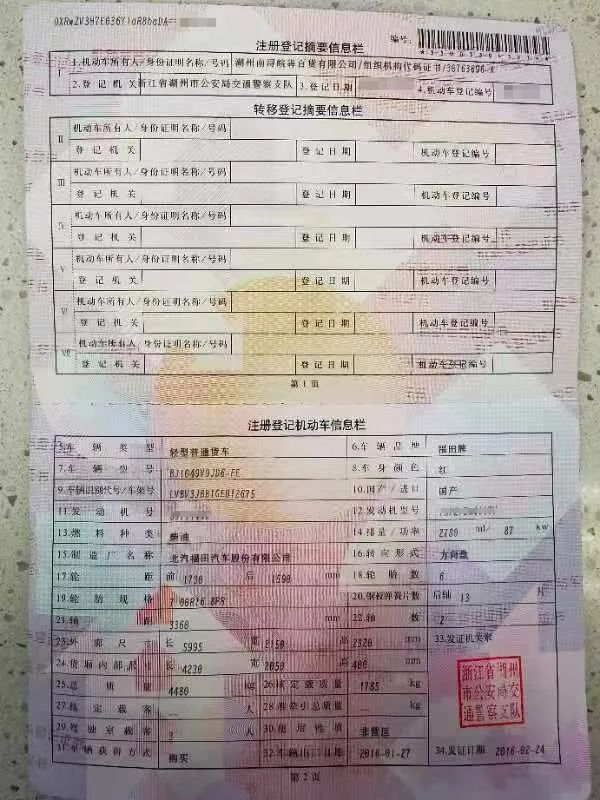 注册登记摘要信息栏
编号:
I 1.机动车所有人/身份证明名称/号码 湖州南浔皖蒋百货有限公司/组织机构代码证书/
2.登 记 机 关 浙江省湖州市公安局交通警察支队 3.登记日期 4.机动车登记编号
转移登记摘要信息栏
II 机动车所有人/身份证明名称/号码
登 记 机 关 登记日期 机动车登记编号
III 机动车所有人/身份证明名称/号码
登 记 机 关 登记日期 机动车登记编号
IV 机动车所有人/身份证明名称/号码
登 记 机 关 登记日期 机动车登记编号
V 机动车所有人/身份证明名称/号码
登 记 机 关 登记日期 机动车登记编号
VI 机动车所有人/身份证明名称/号码
登 记 机 关 登记日期 机动车登记编号
VII 机动车所有人/身份证明名称/号码
登 记 机 关 登记日期 机动车登记编号
第 1 页
注册登记机动车信息栏
5.车 辆 类 型 轻型普通货车 6.车 辆 品 牌 福田牌
7.车 辆 型 号 BJ1049V9JD6-FE 8.车 身 颜 色 红
9.车辆识别代号/车架号 10.国 产 / 进 口 国产
11.发 动 机 号 12.发 动 机 型 号
13.燃 料 种 类 柴油 14.排 量 / 功 率 2780 ml/ 87 kw
15.制 造 厂 名 称 北汽福田汽车股份有限公司 16.转 向 形 式 方向盘
17.轮 距 前 1730 后 1590 mm 18.轮 胎 数 6
19.轮 胎 规 格 7.00R16 8PR 20.钢板弹簧片数 后轴 13 片
21.轴 距 3360 mm 22.轴 数 2 33.发证机关章
23.外 廓 尺 寸 长 5995 宽 2150 高 2320 mm
24.货厢内部尺寸 长 4230 宽 2050 高 400 mm
25.总 质 量 4480 kg 26.核定载质量 1785 kg
27.核 定 载 客 28.准牵引总质量 kg
29.驾 驶 室 载 客 3 人 30.使 用 性 质 非营运
31.车辆获得方式 购买 32.车辆出厂日期 2016-01-27 34.发证日期 2016-02-24
浙江省湖州
市公安局交
通警察支队
第 2 页